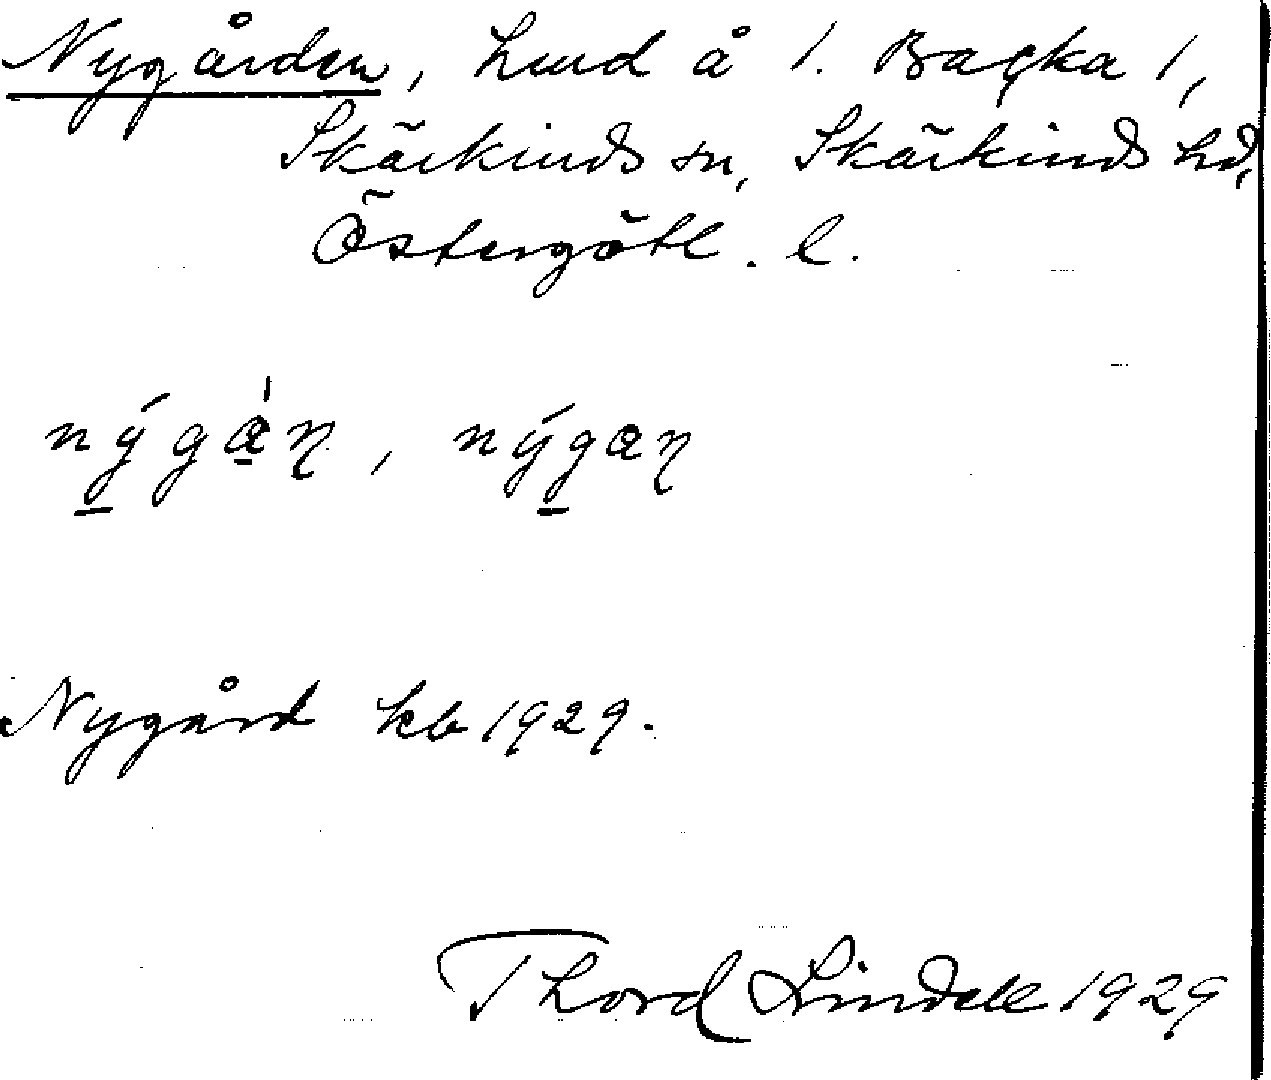 Nygården, hmd å 1. Backa 1,
Skärkinds sn, Skärkinds hd,
Östergötl. l.
Nygård kb 1929.
Thord Lindell 1929